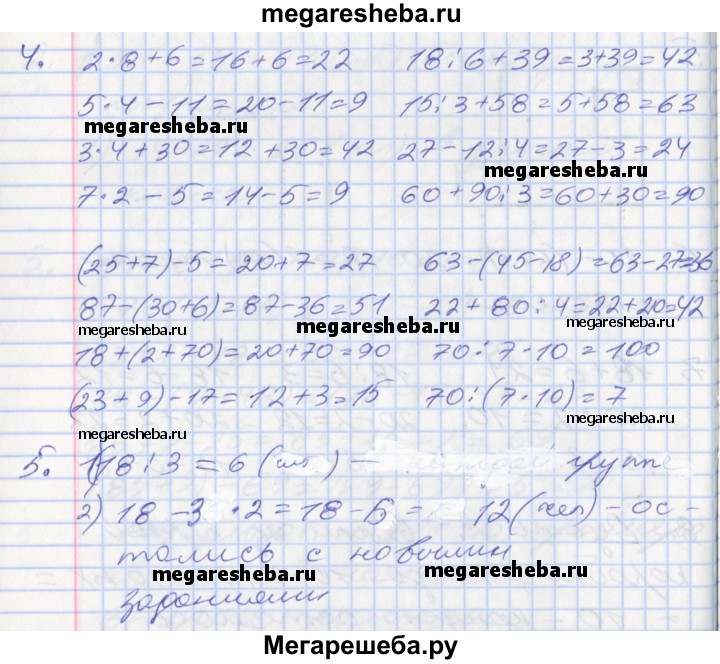 megaresheba.ru
4. 2·8+6=16+6=22 18:6+39=3+39=42
5·4-11=20-11=9 15:3+58=5+58=63
megaresheba.ru
3·4+30=12+30=42 27-12:4=27-3=24
megaresheba.ru
7·2-5=14-5=9 60+90:3=60+30=90
(25+7)-5=20+7=27 63-(45-18)=63-27=36
87-(30+6)=87-36=51 22+80:4=22+20=42
megaresheba.ru megaresheba.ru megaresheba.ru
18+(2+70)=20+70=90 70:7·10=100
(23+9)-17=12+3=15 70:(7·10)=7
megaresheba.ru megaresheba.ru
5. 1)18:3=6 - группе
2) 18-3·2=18-6= 12(чел)-ос-
тались с новыми
megaresheba.ru megaresheba.ru
заданиями
megaresheba.ru
Мегарешеба.ру